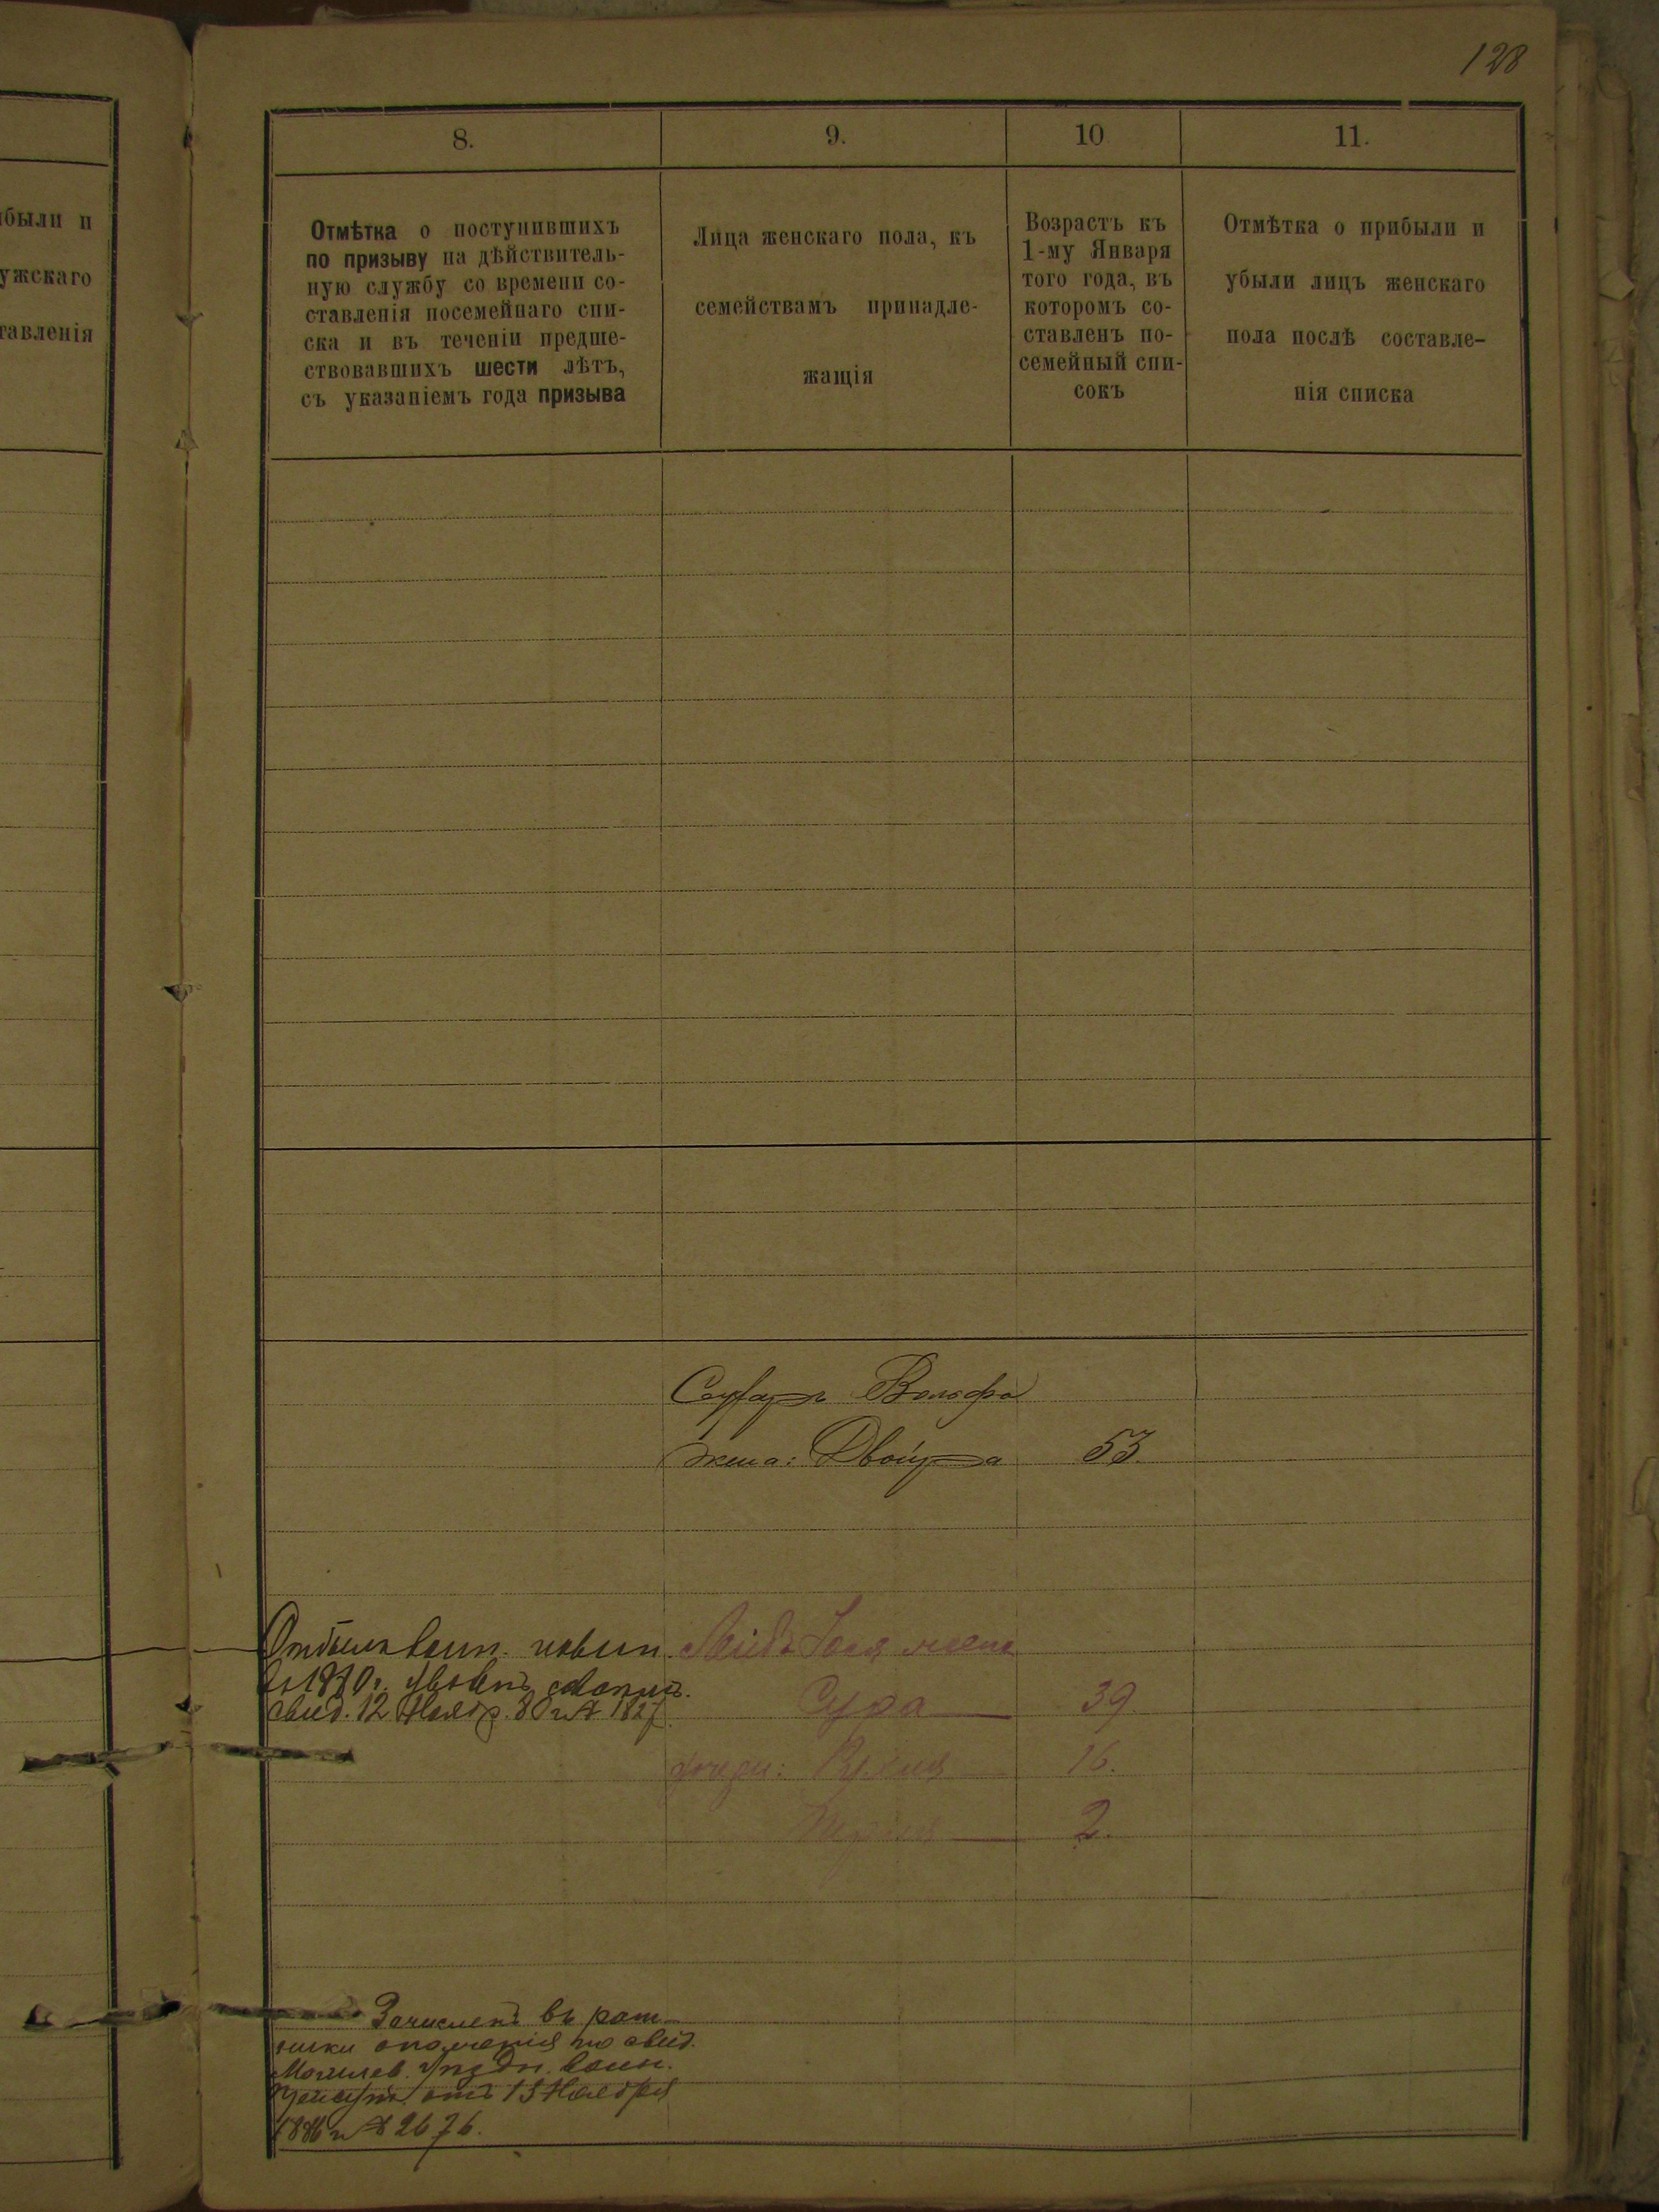 128
были и
ужскаго
тавленія
8.
9.
10.
11.
Отмѣтка о поступившихъ
по призыву на дѣйствитель-
ную службу со времени со-
ставленія посемейнаго спи-
ска и въ теченіи предше-
ствовавшихъ шести лѣтъ,
съ указаніемъ года призыва
Лица женскаго пола, къ
семействамъ принадле-
жащія
Возрастъ къ
1-му Января
того года, въ
которомъ со-
ставленъ по-
семейный спи-
сокъ
Отмѣтка о прибыли и
убыли лицъ женскаго
пола послѣ составле-
нія списка
Вольфа
жена: Двойра 53.
воин. повин.
1880 г.
свид. 12 Ноябр. 80 г № 1827
жена
Сура 39.
дочери: 16.
2.
Зачисленъ въ рат-
ники ополченія по свид.
Могилев. Уѣздн. воин.
отъ 15 Ноября
1886 г № 2676.